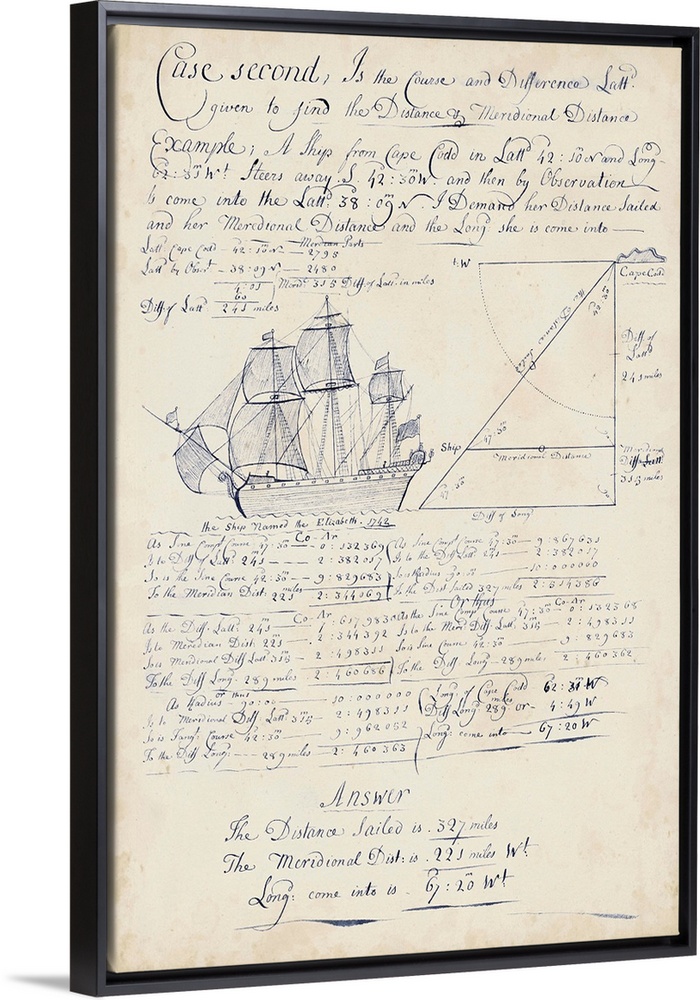 Case second; Is the Course and Difference Lattd.
given to find the Distance & Meridional Distance
Example; A Ship from Cape Codd in Lattd 42:10 N and Long-
62:31 Wt. Steers away S. 42:30 W. and then by Observation
to come into the Lattd: 38:09 N. I Demand her Distance Sailed
and her Meredional Distance and the Longd she is come into —
Meridian Parts
Lattd Cape Codd — 42:10 N — 2795
Lattd by Obsert. - 38:09 N — 2480
4:01 Merdl 315 Diff. of Latt. in miles
60
Diff. of Lattd 241 miles
t:W
Cape Codd
42:30
The Distance Sailed
Diff of
Lattd
241 miles
Ship
47:30
Meridional Distance
Meridional
Diff Lattd
315 miles
47:30
90
Diff of Longd
the Ship Named the Elizabeth. 1742
Co-Ar
As Sine Compt Course 47:30 — 0:132369
Is to Diff of Lattd 241 — 2:382017
So is the Sine Course 42:30 — 9:829683
To the Meridian Dist: 221 miles 2:344069
As Sine Compt Course 47:30 — 9:867631
Is to the Diff Lattd 241 — 2:382017
So is Radius 90:00 — 10:000000
To the Dist Sailed 327 miles — 2:514386
Or thus
Co-Ar
As the Diff. Lattd 241 — 7:617983
Is to Meredian Disth 221 — 2:344392
So is Meredional Diff Lattd 315 — 2:498311
To the Diff. Longd - 289 miles — 2:460686
Co-Ar
As the Sine Compt Course 47:30 — 0:132368
Is to the Merdl Diff Lattd 315 — 2:498311
So is Sine Course 42:30 — 9:829683
To the Diff. Longd - 289 miles — 2:460362
or thus
As Radius — 90:00 — 10:000000
Is to Meridional Diff Lattd 315 — 2:498311
So is Tangt Course 42:30 — 9:962052
To the Diff Longd — 289 miles — 2:460363
Longd of Cape Codd 62:31 W
miles
Diff Longd 289 or - 4:49 W
Longd come into — 67:20 W
Answer
The Distance Sailed is . 327 miles
The Meridional Dist: is . 221 miles Wt.
Longd: come into is - 67:20 Wt